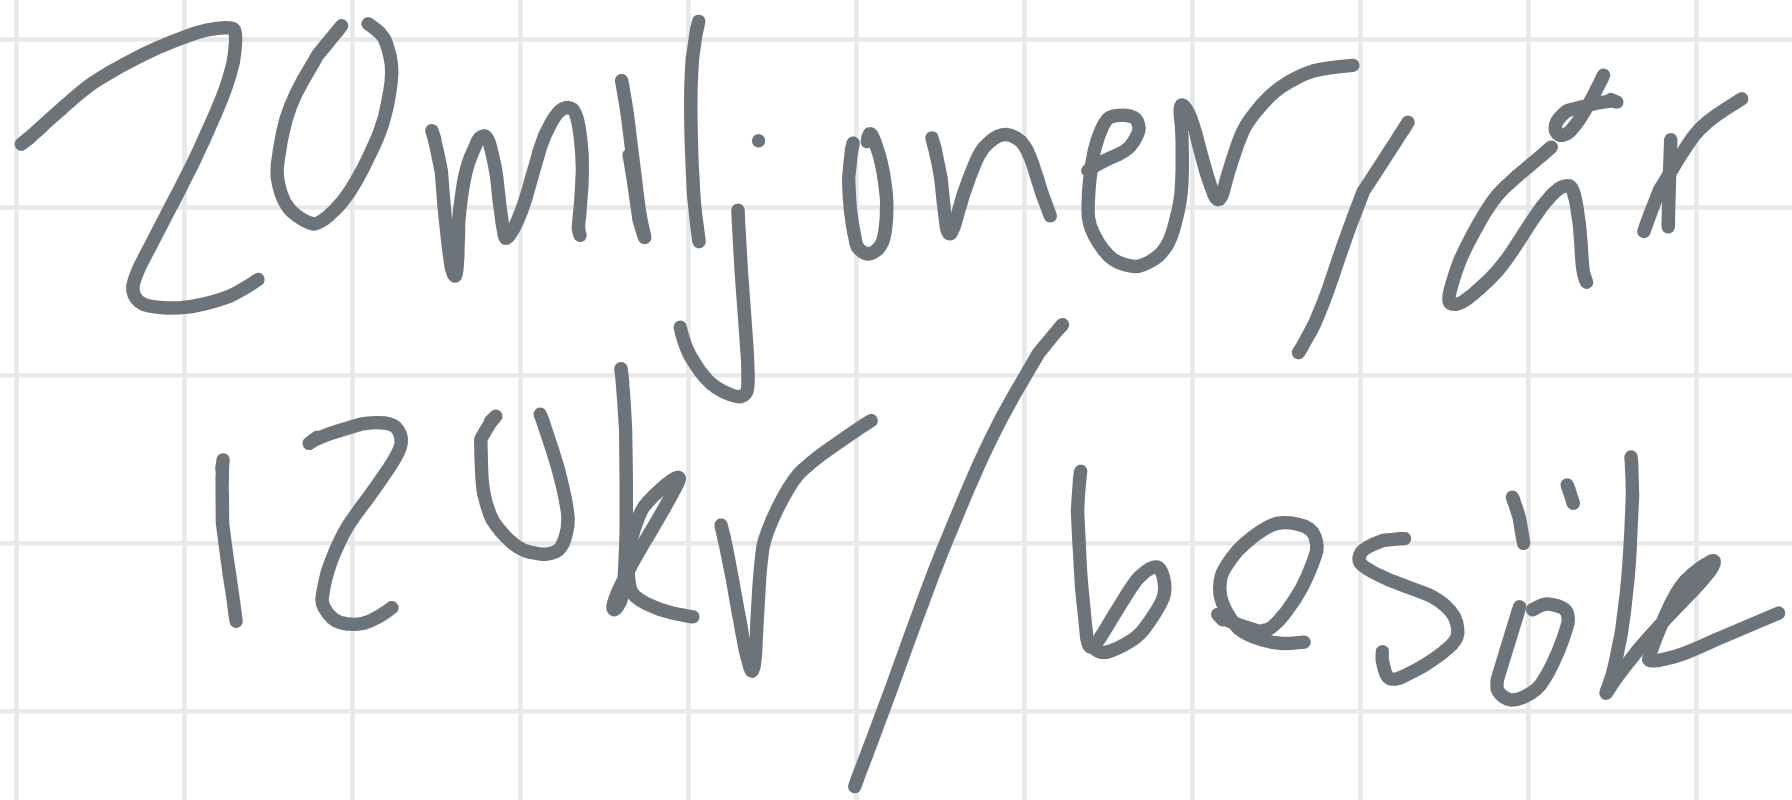 20miljoner/år
120kr/besök